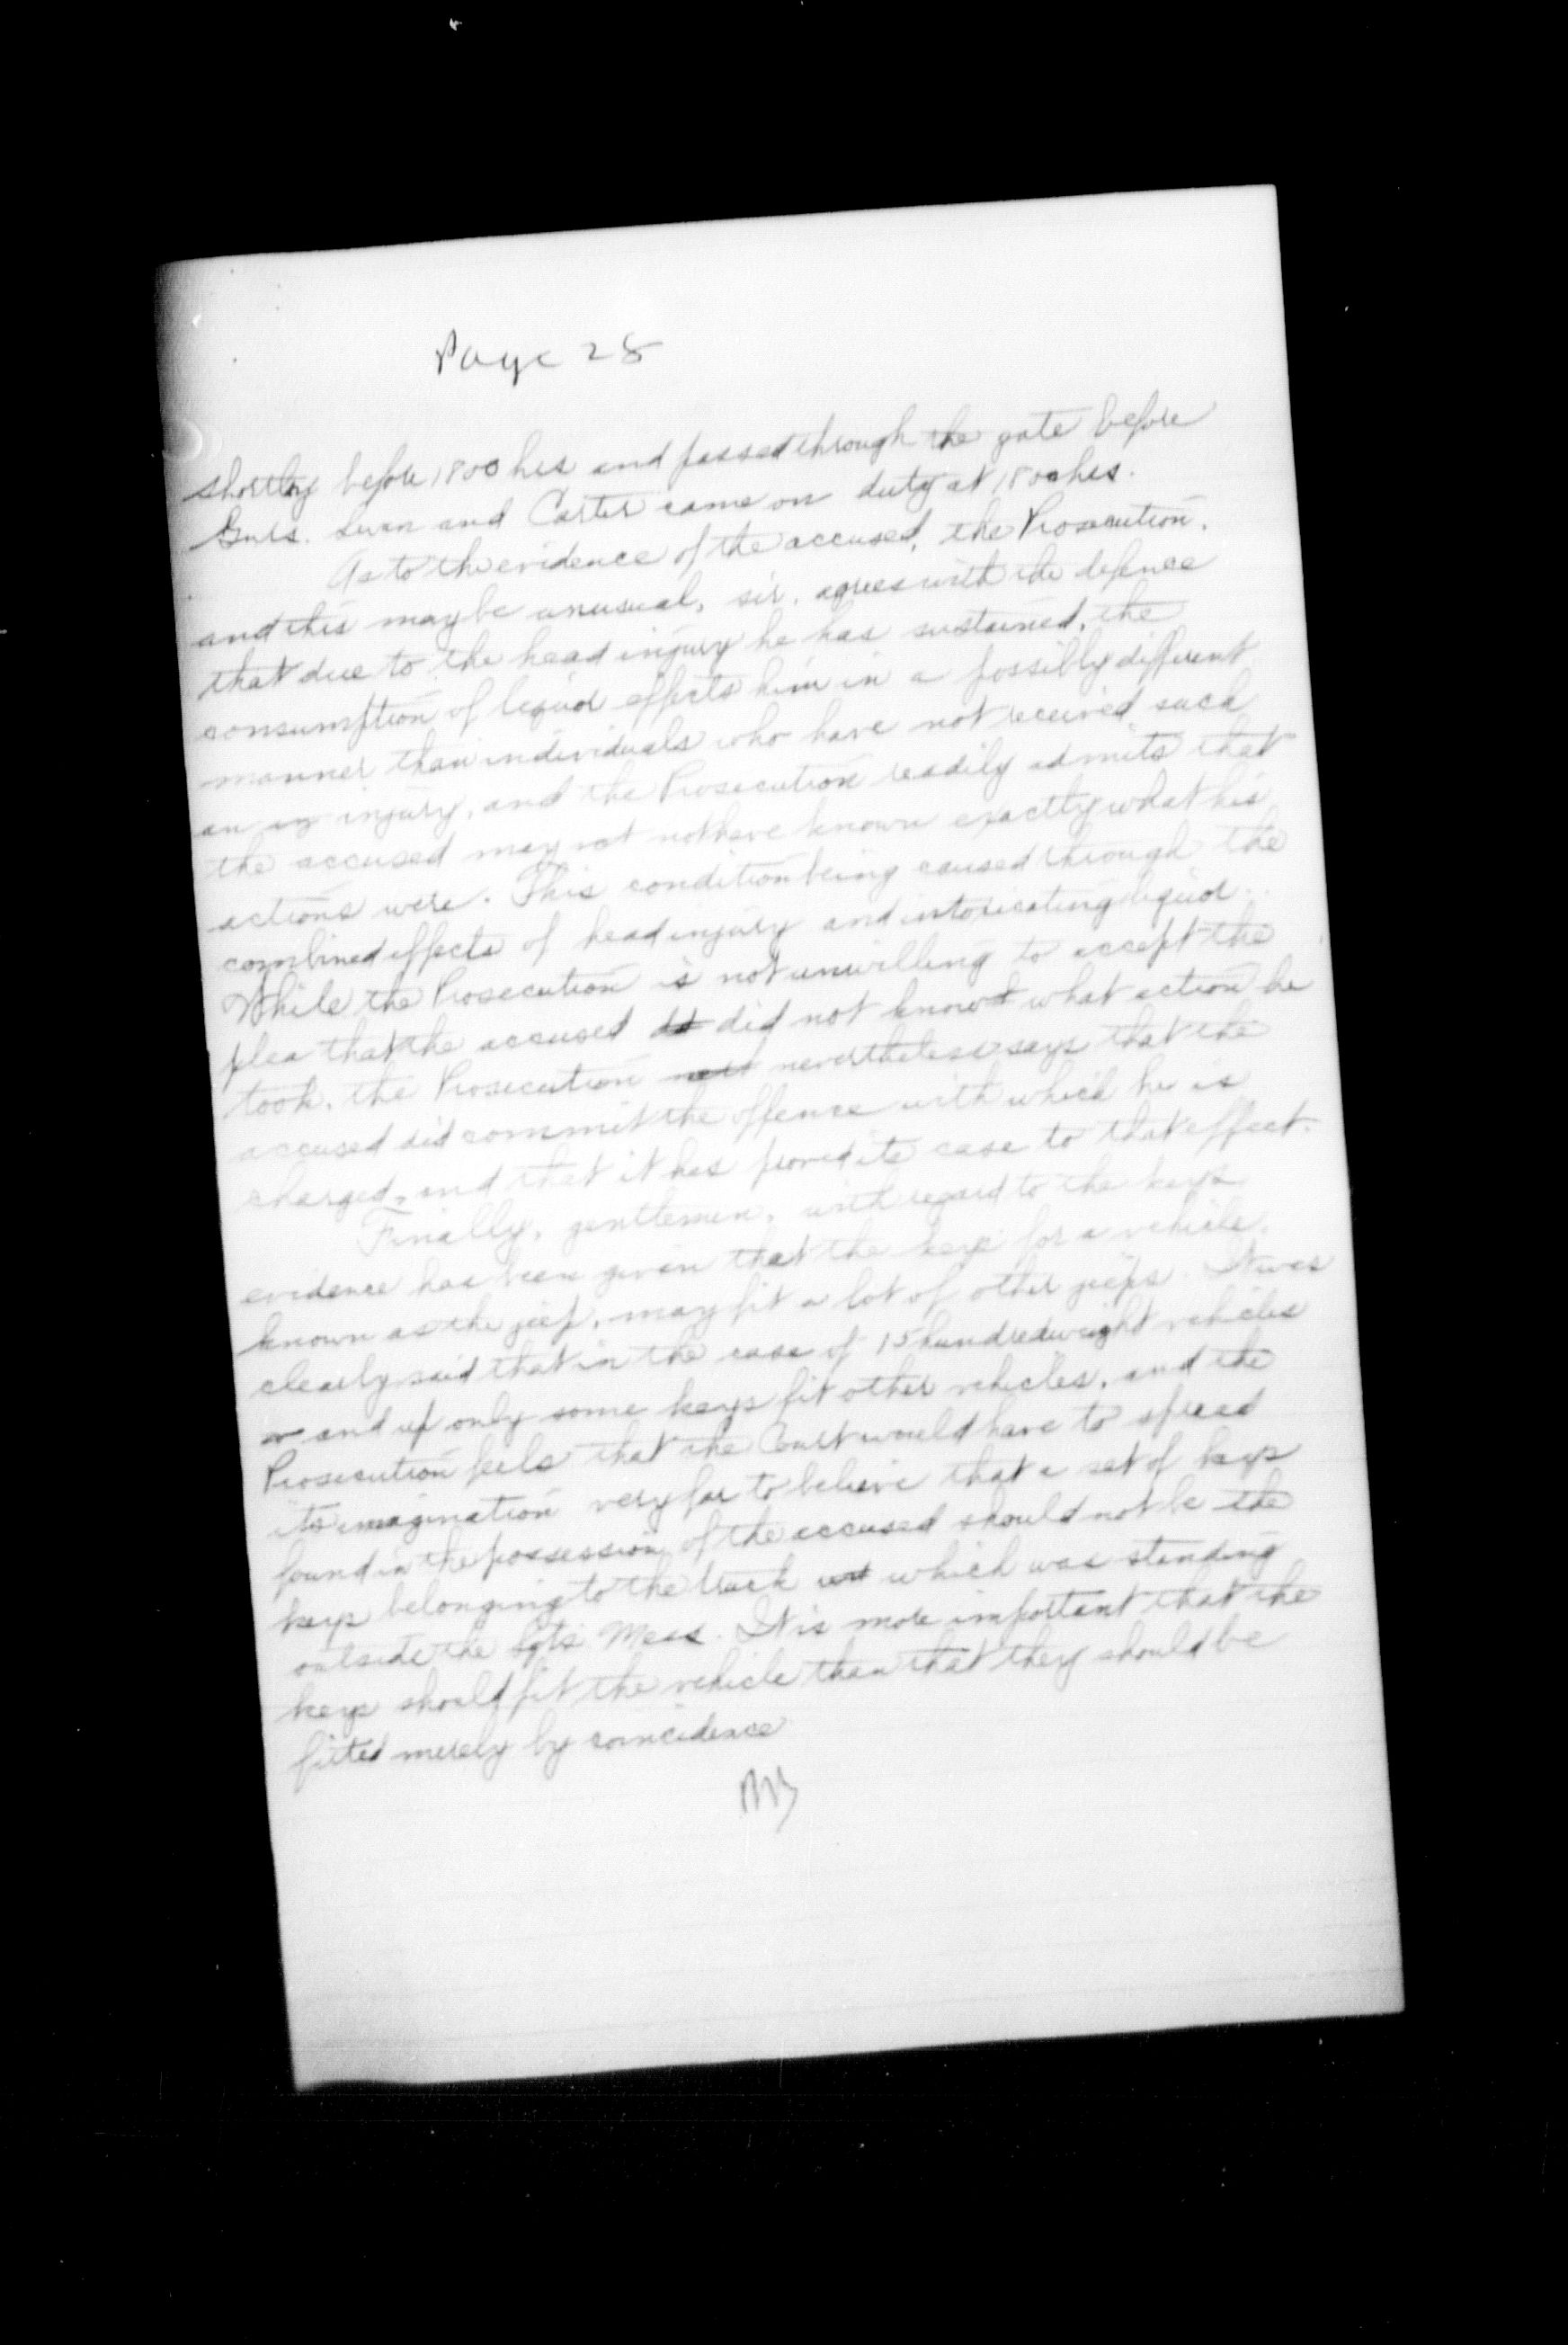 Page 28
shortly before 1800 hrs and passed through the gate before
Gnrs. Swan and Carter came on duty at 1800 hrs.
As to the evidence of the accused, the Prosecution,
and this may be unusual, sir, agrees with the defence
that due to the head injury he has sustained, the
consumption of liquor effects him in a possibly different
manner than individuals who have not received such
an injury, and the Prosecution readily admits that
the accused may not have known exactly what his
actions were. This condition being caused through the
combined effects of head injury and intoxicating liquor.
While the Prosecution is not unwilling to accept the
plea that the accused did not know what action he
took, the Prosecution nevertheless says that the
accused did commit the offence with which he is
charged, and that it has proved its case to that effect.
Finally, gentlemen, with regard to the keys
evidence has been given that the keys for a vehicle,
known as the jeep, may fit a lot of other jeeps. It was
clearly said that in the case of 15 hundredweight vehicles
and up only some keys fit other vehicles, and the
Prosecution feels that the Court would have to spread
its imagination very far to believe that a set of keys
found in the possession of the accused should not be the
keys belonging to the truck which was standing
outside the Sgts Mess. It is more important that the
keys should fit the vehicle than that they should be
fitted merely by coincidence